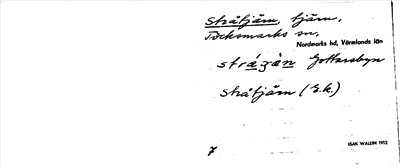 Stråtjärn, tjärn,
Töcksmarks sn,
Nordmarks hd, Värmlands län
stráʒàn Gottarsbyn
Stråtjärn (E.k.)
7
ISAK WALLIN 1912